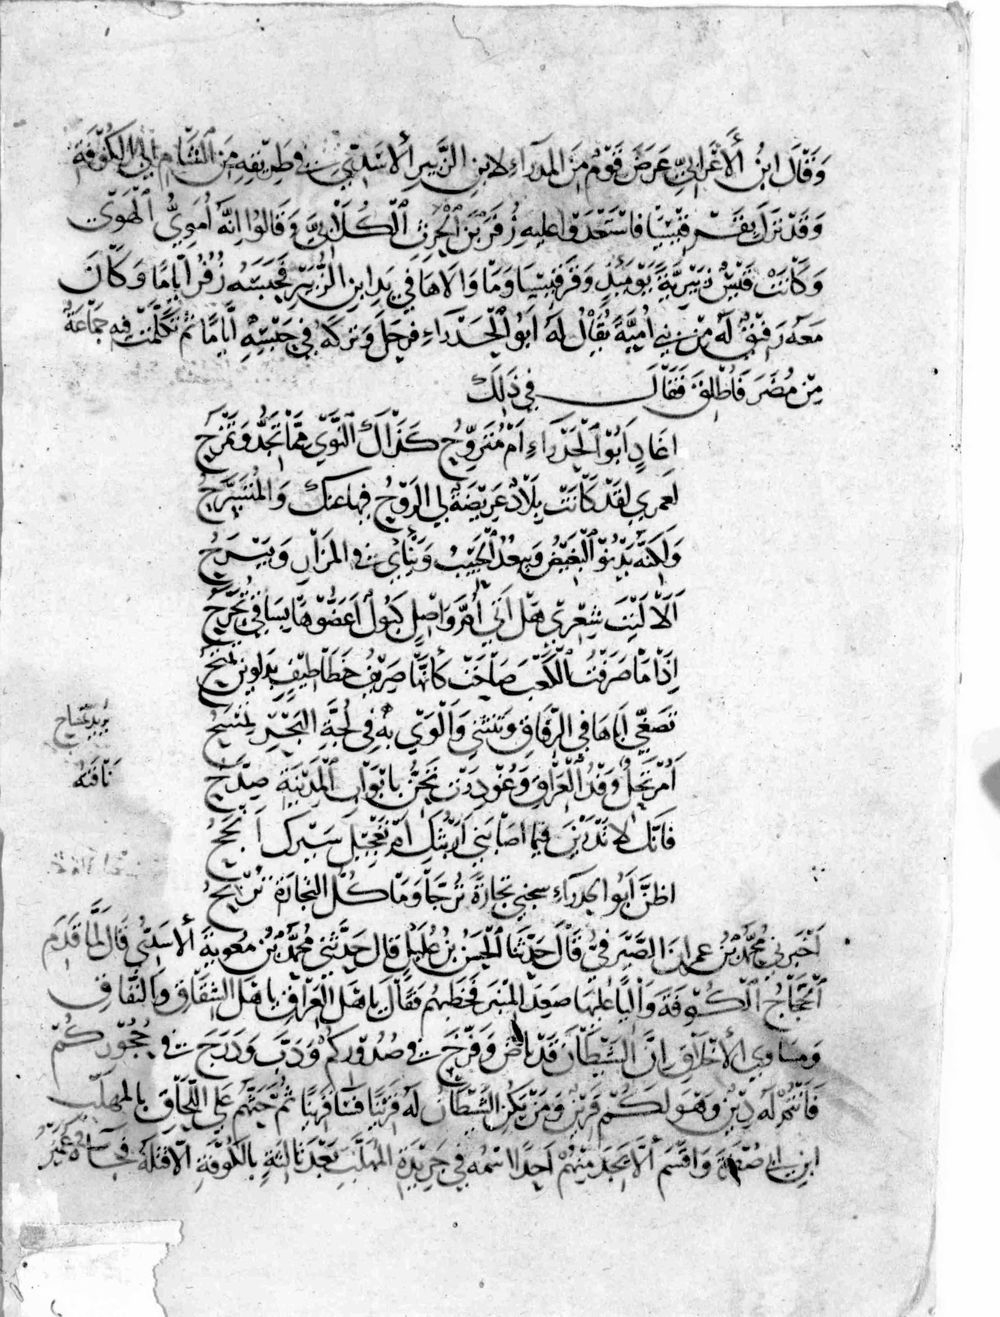 وَقَالَ ابنُ الأَعْرَابيّ عَرَضَ قَوْمٌ مِنَ المدَرَاءِ لابنِ الزَّبِيرِ الأَسَدِيّ في طَرِيقِهِ مِنَ الشَّامِ اِلَى الكُوفَةِ
وَقَدْ نَزَلَ بقَرْقِيْسِيَا فَاسْتَعْدَوْا عليهِ زُفَرَ بْنَ الْحٰرثِ الكِلَابيَّ وَقَالُوا اِنَّهُ أُمَوِيُّ الْهَوَى
وَكَانَتْ قَيْسٌ زُبَيْرِيَّةً يَوْمَئِذٍ وَقَرقِيسِيَا وَمَا وَالَاهَا في يَدِ ابنِ الزُّبَيْرِ فَحَبَسَهُ زُفَرُ اَيَّامًا وَكَانَ
مَعَهُ رَفِيْقٌ لَهُ مِنْ بَنِي اُمَيَّةَ يُقَالُ لَهُ اَبُو الْحَدْرَاءِ فَرَحَلَ وَتركَهُ في حَبْسِهِ اَيَّامًا ثُمَّ تَكَلَّمَتْ فِيهِ جَمَاعَةٌ
مِنْ مُضَرَ فَاُطْلِقَ فَقَالَ في ذٰلِكَ
اَغَادٍ اَبُو الْحَدْرَاءِ اَمْ مُتَرَوِّحُ كَذَاكَ النَّوَى مِمَّا تَجِدُّ وَتَمْزَحُ
لعَمري لَقَدْ كَانَتْ بِلَادٌ عَرِيْضَةٌ لي الرَّوْحُ فيها عنكَ وَالمُتَسَرَّحُ
وَلَكِنَّهُ يَدْنُو الْبَغِيْضُ وَيبعُدُ الْحَبِيْبُ وَيَنْأَى في المَزَارِ وَيَنْزَحُ
اَلَا لَيْتَ شِعْرِي هَلْ اَتَى أُمَّ وَاصِلٍ كُبُولٌ اَعَضُّوْهَا بِسَاقيَ تَجْرَحُ
اِذَا مَا صَرَفْتُ الكَعْبَ صَاحَتْ كَأَنَّهَا صَرِيْفُ خَطَاطِيفٍ بِدَلْوَيْنِ تَمْتَحُ
تُبَغِّي اَبَاهَا في الرِّفَاقِ وَتَنْثَنِي وَاَلْوَى بِهِ في لُجَّةِ البَحْرِ تِمْسَحُ
يُريد تِمْسَاح
اَمُرْتَحِلٌ وَفْدُ الْعِرَاقِ وَغُوْدِرَتْ تَحِنُّ بِاَبْوَابِ الْمَدِيْنَةِ صَيْدَحُ
نَاقَتُهُ
فَاَنَّكِ لَا تَدْرِيْنَ فِيْمَا اَصَابَنِي اَرَيْثُكِ اَمْ تَعْجِيْلُ سَيْرِكِ اَنْجَحُ
اظَنَّ اَبُو الحدرَاءِ سِجْنِي تِجَارَةً تُرَجَّا وَمَا كُلُّ التِّجَارَةِ تُرْبِحُ
اَخْبَرني مُحَمَّدُ بْنُ عِمرانَ الصَّيْرَفيُّ قَالَ حَدَّثَنَا الْحَسَنُ بنُ عُلَيْلٍ قَالَ حَدَّثَنِي مُحَمَّدُ بْنُ مُعٰوِيَةَ الأَسَدِيُّ قَالَ لَمَّا قَدِمَ
الْحَجَّاجُ الْكُوْفَةَ وَاليًا عَلَيْهَا صَعِدَ المِنْبَرَ فَخَطَبَهُم فَقَالَ يا اَهْلَ العِرَاقِ يا اَهْلَ الشِّقَاقِ وَالنِّفَاقِ
وَمَسَاوِي الأَخْلَاقِ اِنَّ الشَّيْطَانَ قَدْ بَاضَ وَفَرَّخَ في صُدُوْرِكُمْ وَدَبَّ وَدَرَجَ في حُجُوْرِكُمْ
فَاَنْتُمْ لَهُ دِيْنٌ وَهُوَ لكُمْ قَرِيْنٌ وَمَنْ يكُنِ الشَّيْطَانُ لَهُ قَرِيْنًا فسَاءَ قَرِيْنًا ثُمَّ حَثَّهُمْ عَلَى اللَّحَاقِ بالمهَلَّبِ
ابنِ اَبي صُفْرَةَ وَاَقْسَمَ أَلَّا يَجدَ مِنْهُمْ اَحَدًا اسْمُهُ في جَرِيْدَةِ المُهَلَّبِ بَعْدَ ثَالثَةٍ بِالكُوْفَةِ اِلَّا قتَلَهُ فَجَاءَهُ عُمَيْرُ